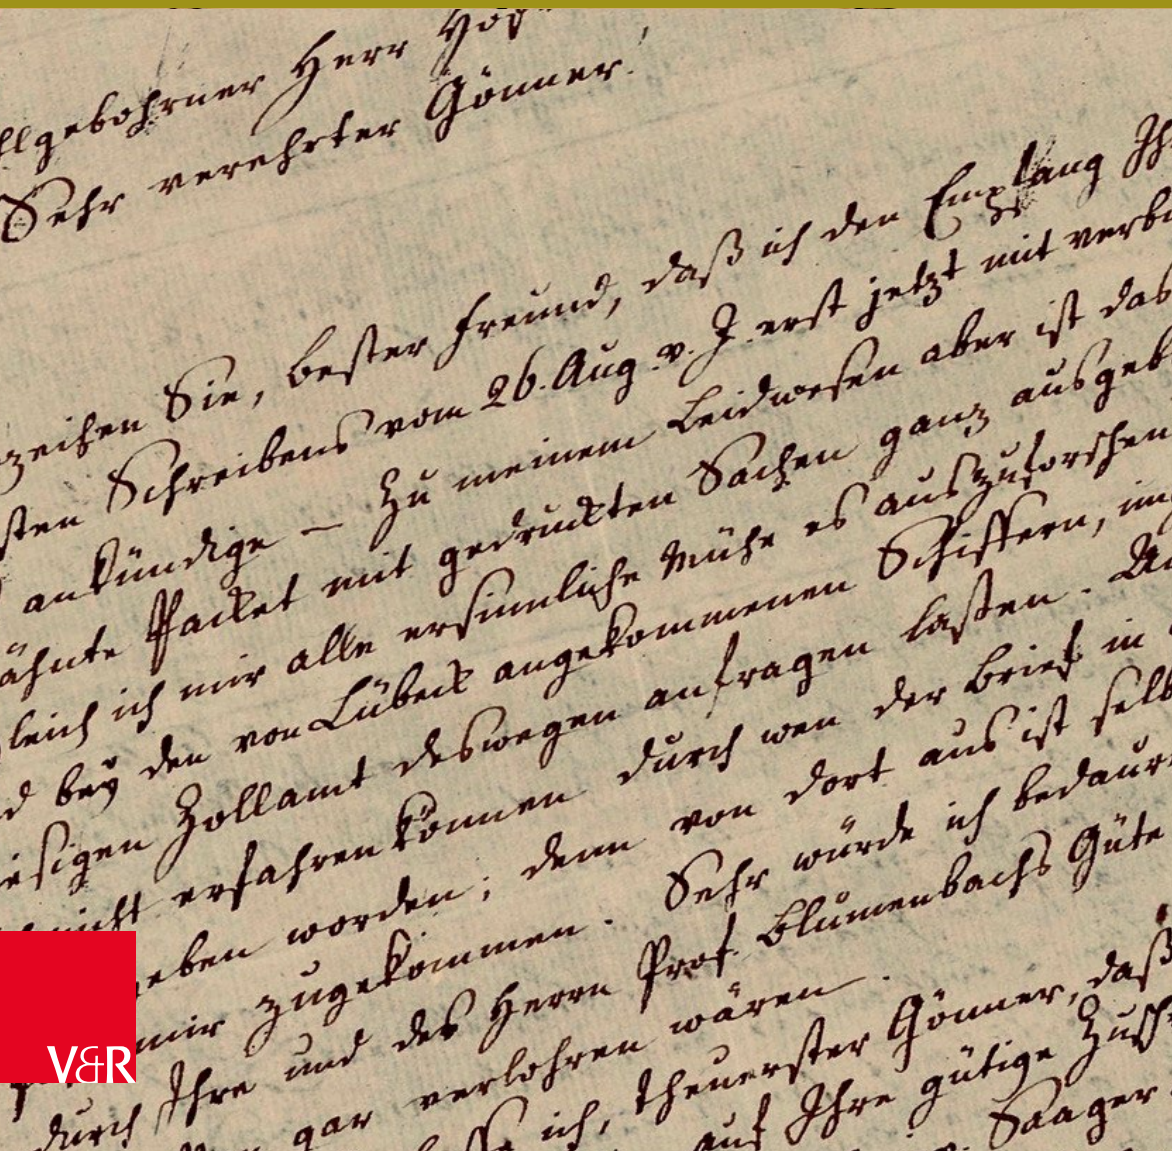 llgebohrner Herr Hof
Sehr verehrter Gönner!
zeihen Sie, bester Freund, daß ich den Empfang Ih
sten Schreibens vom 26. Aug. v. J. erst jetzt mit verbi
ankündige — Zu meinem Leidwesen aber ist das
ähnte Packet mit gedruckten Sachen ganz ausgeb
leich ich mir alle ersinnliche Mühe es auszuforschen
d bey den von Lübeck angekommenen Schiffern, im
iesigen Zollamt deswegen anfragen laßen. Au
nicht erfahren können durch wen der Brief in
geben worden; denn von dort aus ist selb
mir zugekommen. Sehr würde ich bedaur
durch Ihre und des Herrn Prof. Blumenbachs Güte
gar verlohren wären.
ich, theuerster Gönner, daß
auf Ihre gütige Zusch
Saager
V&R